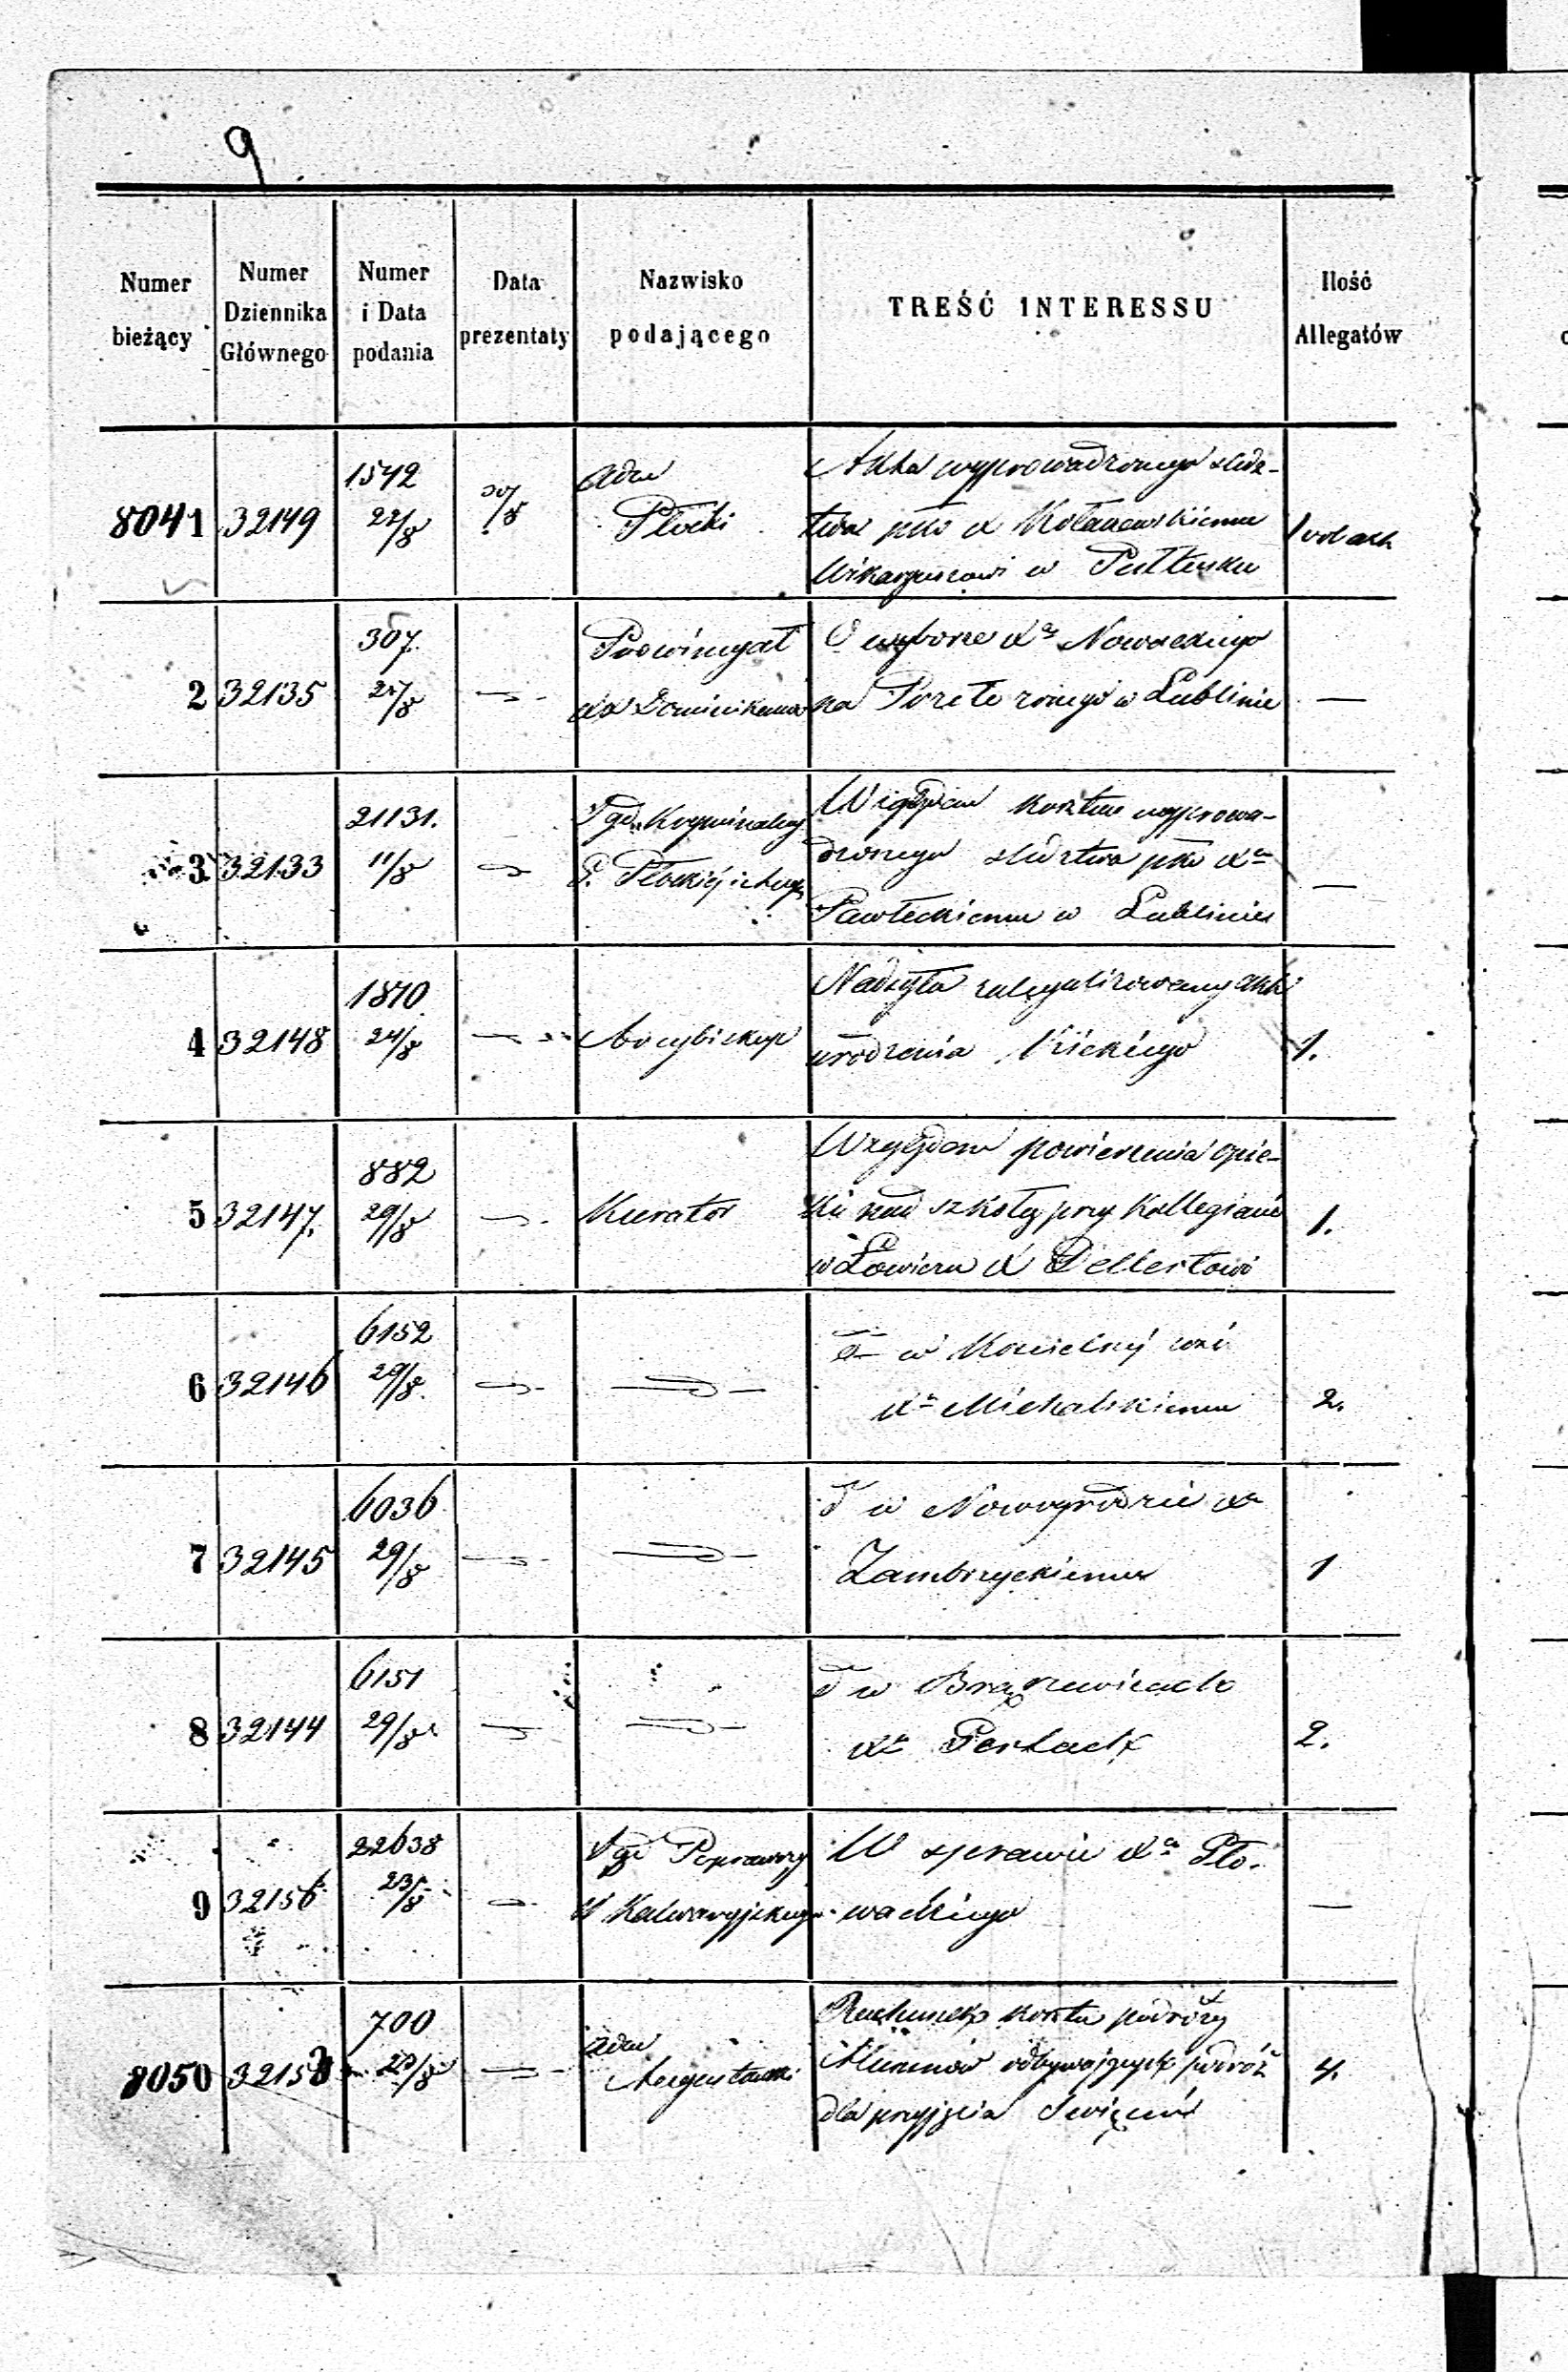 9
Numer bieżący
Numer Dziennika Głównego
Numer i Data podania
Data prezentaty
Nazwisko podającego
TREŚĆ INTERESSU
Ilość Allegatów
8041 32149 1542 27/8 30/8 Adm Płocki
Akta wyprowadzonego śledz-
twa pko X Kołanowskiemu
Wikaryuszowi w Pułtusku
2 32135 307. 27/8
Prowincyał
XX Dominikanów
O wyborze Xa Nowackiego
na Przełożonego w Lublinie
—
3 32133 21131. 11/8
Sąd Kryminalny
G. Płockiej i
Względem kosztów wyprowa-
dzonego śledztwa pko Xa
Pawłeckiemu w
—
4 32148 1870 24/8
Arcybiskup
Nadsyła zalegalizowany akt
urodzenia
1.
5 32147. 882 29/8
Kurator
Względem powierzenia opie-
ki nad szkołą przy Kollegiacie
w Łowiczu X
1.
6 32146 6152 29/8
w Kościelnej wsi
Xa Michalskiemu
2.
7 32145 6036 29/8
w Nowogrodzie Xa
Zambrzyckiemu
1
8 32144 6151 29/8
w
Xa
2.
9 32156 22638 23/8
Sąd Poprawczy
W Kalwaryjskiego
W sprawie Xa Pło-
wackiego
—
8050 32153 700 23/8
Adm
Augustowski
Rachunek kosztu podróży
Alumnów odbywających podróż
dla przyjęcia Święceń
4.